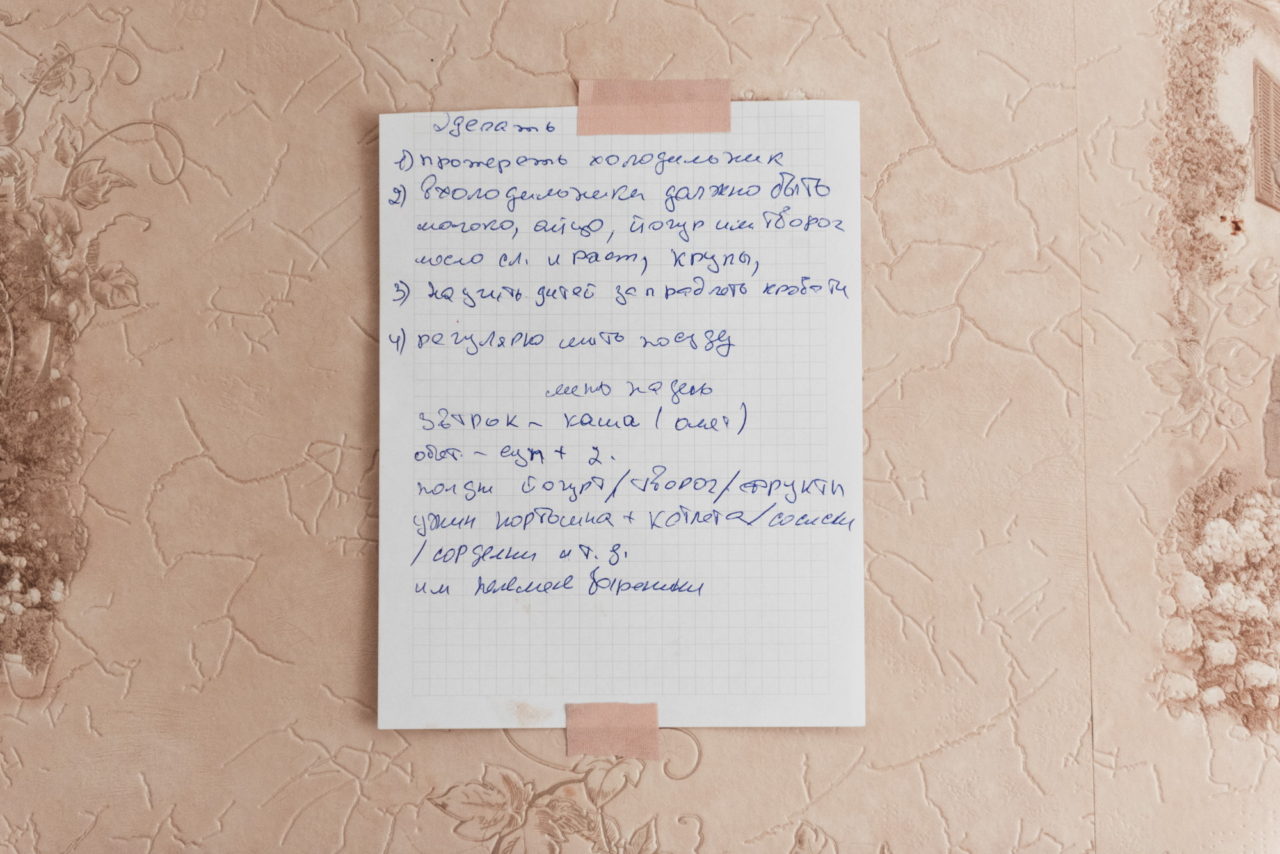 Сделать
1) протереть холодильник
2) в холодильники должно быть
молоко, яйцо, йогур или творог
масло сл. и раст, крупы,
3) научить дитей заправлять кровати
4) регулярю мыть посуду
меню на день
звтрок - каша (омлет)
обет. - суп + 2.
полдн йогурт/творог/фрукты
ужин картошка + котлета/сосиски
/сардельки и т.д.
или